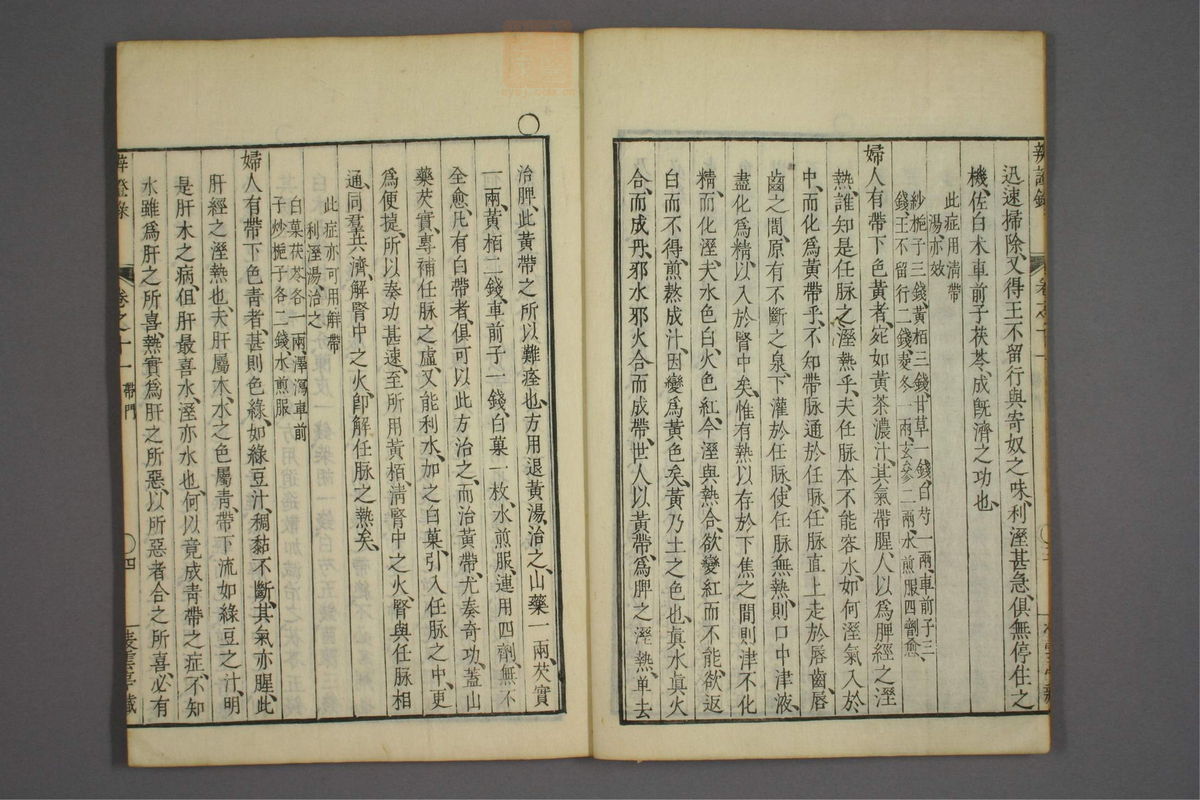 迅速掃除、又得王不留行與寄奴之味、利溼甚急、俱無停住之
機、佐白朮車前子茯苓、成旣濟之功也、
此症用淸帶
湯亦效
炒梔子三錢、黃栢三錢、甘草一錢、白芍一兩、車前子三
錢、王不留行二錢、麥冬一兩、玄參二兩、水煎服四劑愈、
婦人有帶下色黃者、宛如黃茶濃汁、其氣帶腥、人以爲脾經之溼
熱、誰知是任脉之溼熱乎、夫任脉本不能容水、如何溼氣入於
中、而化爲黃帶乎、不知帶脉通於任脉、任脉直上走於唇齒、唇
齒之間、原有不斷之泉、下灌於任脉、使任脉無熱、則口中津液、
盡化爲精、以入於腎中矣、惟有熱以存於下焦之間、則津不化
精、而化溼、夫水色白、火色紅、今溼與熱合、欲變紅而不能、欲返
白而不得、煎熬成汁、因變爲黃色矣、黃乃土之色也、眞水眞火
合而成丹、邪水邪火合而成帶、世人以黃帶、爲脾之溼熱、单去
治脾、此黃帶之所以難痊也、方用退黃湯、治之、山藥一兩、芡實
一兩、黃栢二錢、車前子一錢、白菓一枚、水煎服、連用四劑、無不
全愈、凡有白帶者、俱可以此方治之、而治黃帶、尤奏奇功、蓋山
藥芡實、專補任脉之虛、又能利水、加之白菓、引入任脉之中、更
爲便捷、所以奏功甚速、至所用黃栢、淸腎中之火、腎與任脉相
通、同羣共濟、解腎中之火、卽解任脉之熱矣、
此症亦可用解帶
利溼湯治之
白菓茯苓各一兩、澤瀉車前
子炒梔子各二錢、水煎服
婦人有帶下色靑者、甚則色綠、如綠豆汁、稠黏不斷、其氣亦腥、此
肝經之溼熱也、夫肝屬木、木之色屬靑、帶下流如綠豆之汁、明
是肝木之病、但肝最喜水、溼亦水也、何以竟成靑帶之症、不知
水雖爲肝之所喜、熱實爲肝之所惡、以所惡者合之所喜、必有
辨證錄
卷之十一
帶門
四